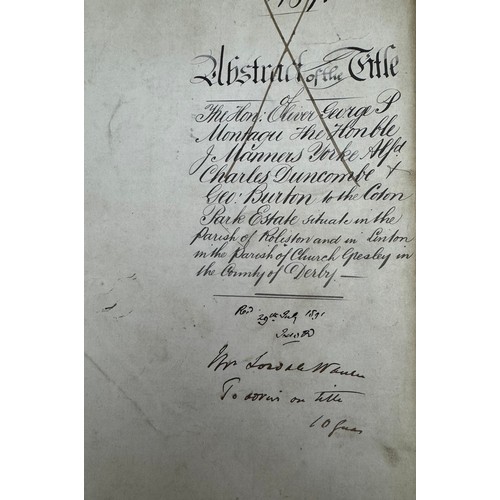 1891.
Abstract of the Title
The Hon: Oliver George P
Montagu The Honble
J Manners Yorke Alfd
Charles Duncombe &
Geo: Burton to the Coton
Park Estate situate in the
Parish of Roliston and in Linton
in the Parish of Church Gresley in
the County of Derby —
Red
29th July 1891
Mr
To advise on title
10 Guas